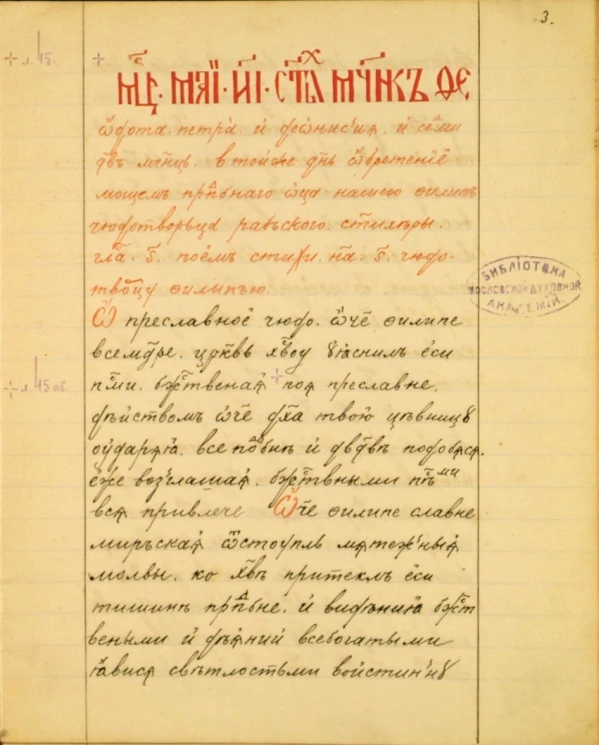 3.
л. 45.
мⷭ҇ц. маїѧ. и҃і. ст҃ыⷯ мч҃нкъ ѳе
ѡ҆дота. петра̀ и҆ деѡнис'иѧ. и҆ се́ми
дв҃ъ мч҃ницъ. в тойже дн҃ь ѡ҆бретение҆
мощемъ прпⷣбнаго ѡ҆ца нашею филипъ
чюдотворьца рабьского. стихѣры.
гла. ѕ҃. пое́мъ стихи. на. ѕ҃. чюдо.
твоⷬцу филипью
Ѡ҆ преславное҆ чюдо. ѡ҆ч҃е филипе
всемⷣре. црⷪ҇квь хв҃оу ꙋ҆ꙗснилъ е҆си
пѣⷭ҇ми. бжⷭ҇твенаѧ поѧ преславне.
дѣйствомъ ѡ҆ч҃е дх҃а твою цѣвницꙋ
оу҆дарѧѧ. все пⷣобне и҆ дв҃дъ подобѧсѧ.
е҆же возглашаѧ. бжⷭ҇твными пѣⷭ҇ми
всѧ привлече Ѡ҆ч҃е филипе славне
мирьскаѧ ѿстоупль мѧтежныѧ
молвы. ко хв҃ѣ притеклъ е҆си
тишинѣ прпⷣбне. и҆ видѣнию бжⷭ҇т
веными и҆ дѣѧний всебогатыми
ꙗ҆висѧ свѣтлостьми войстин'нꙋ
л. 45 об.
БИБЛІОТЕКА
МОСКОВСКОЙ ДУХОВНОЙ
АКАДЕМІИ.